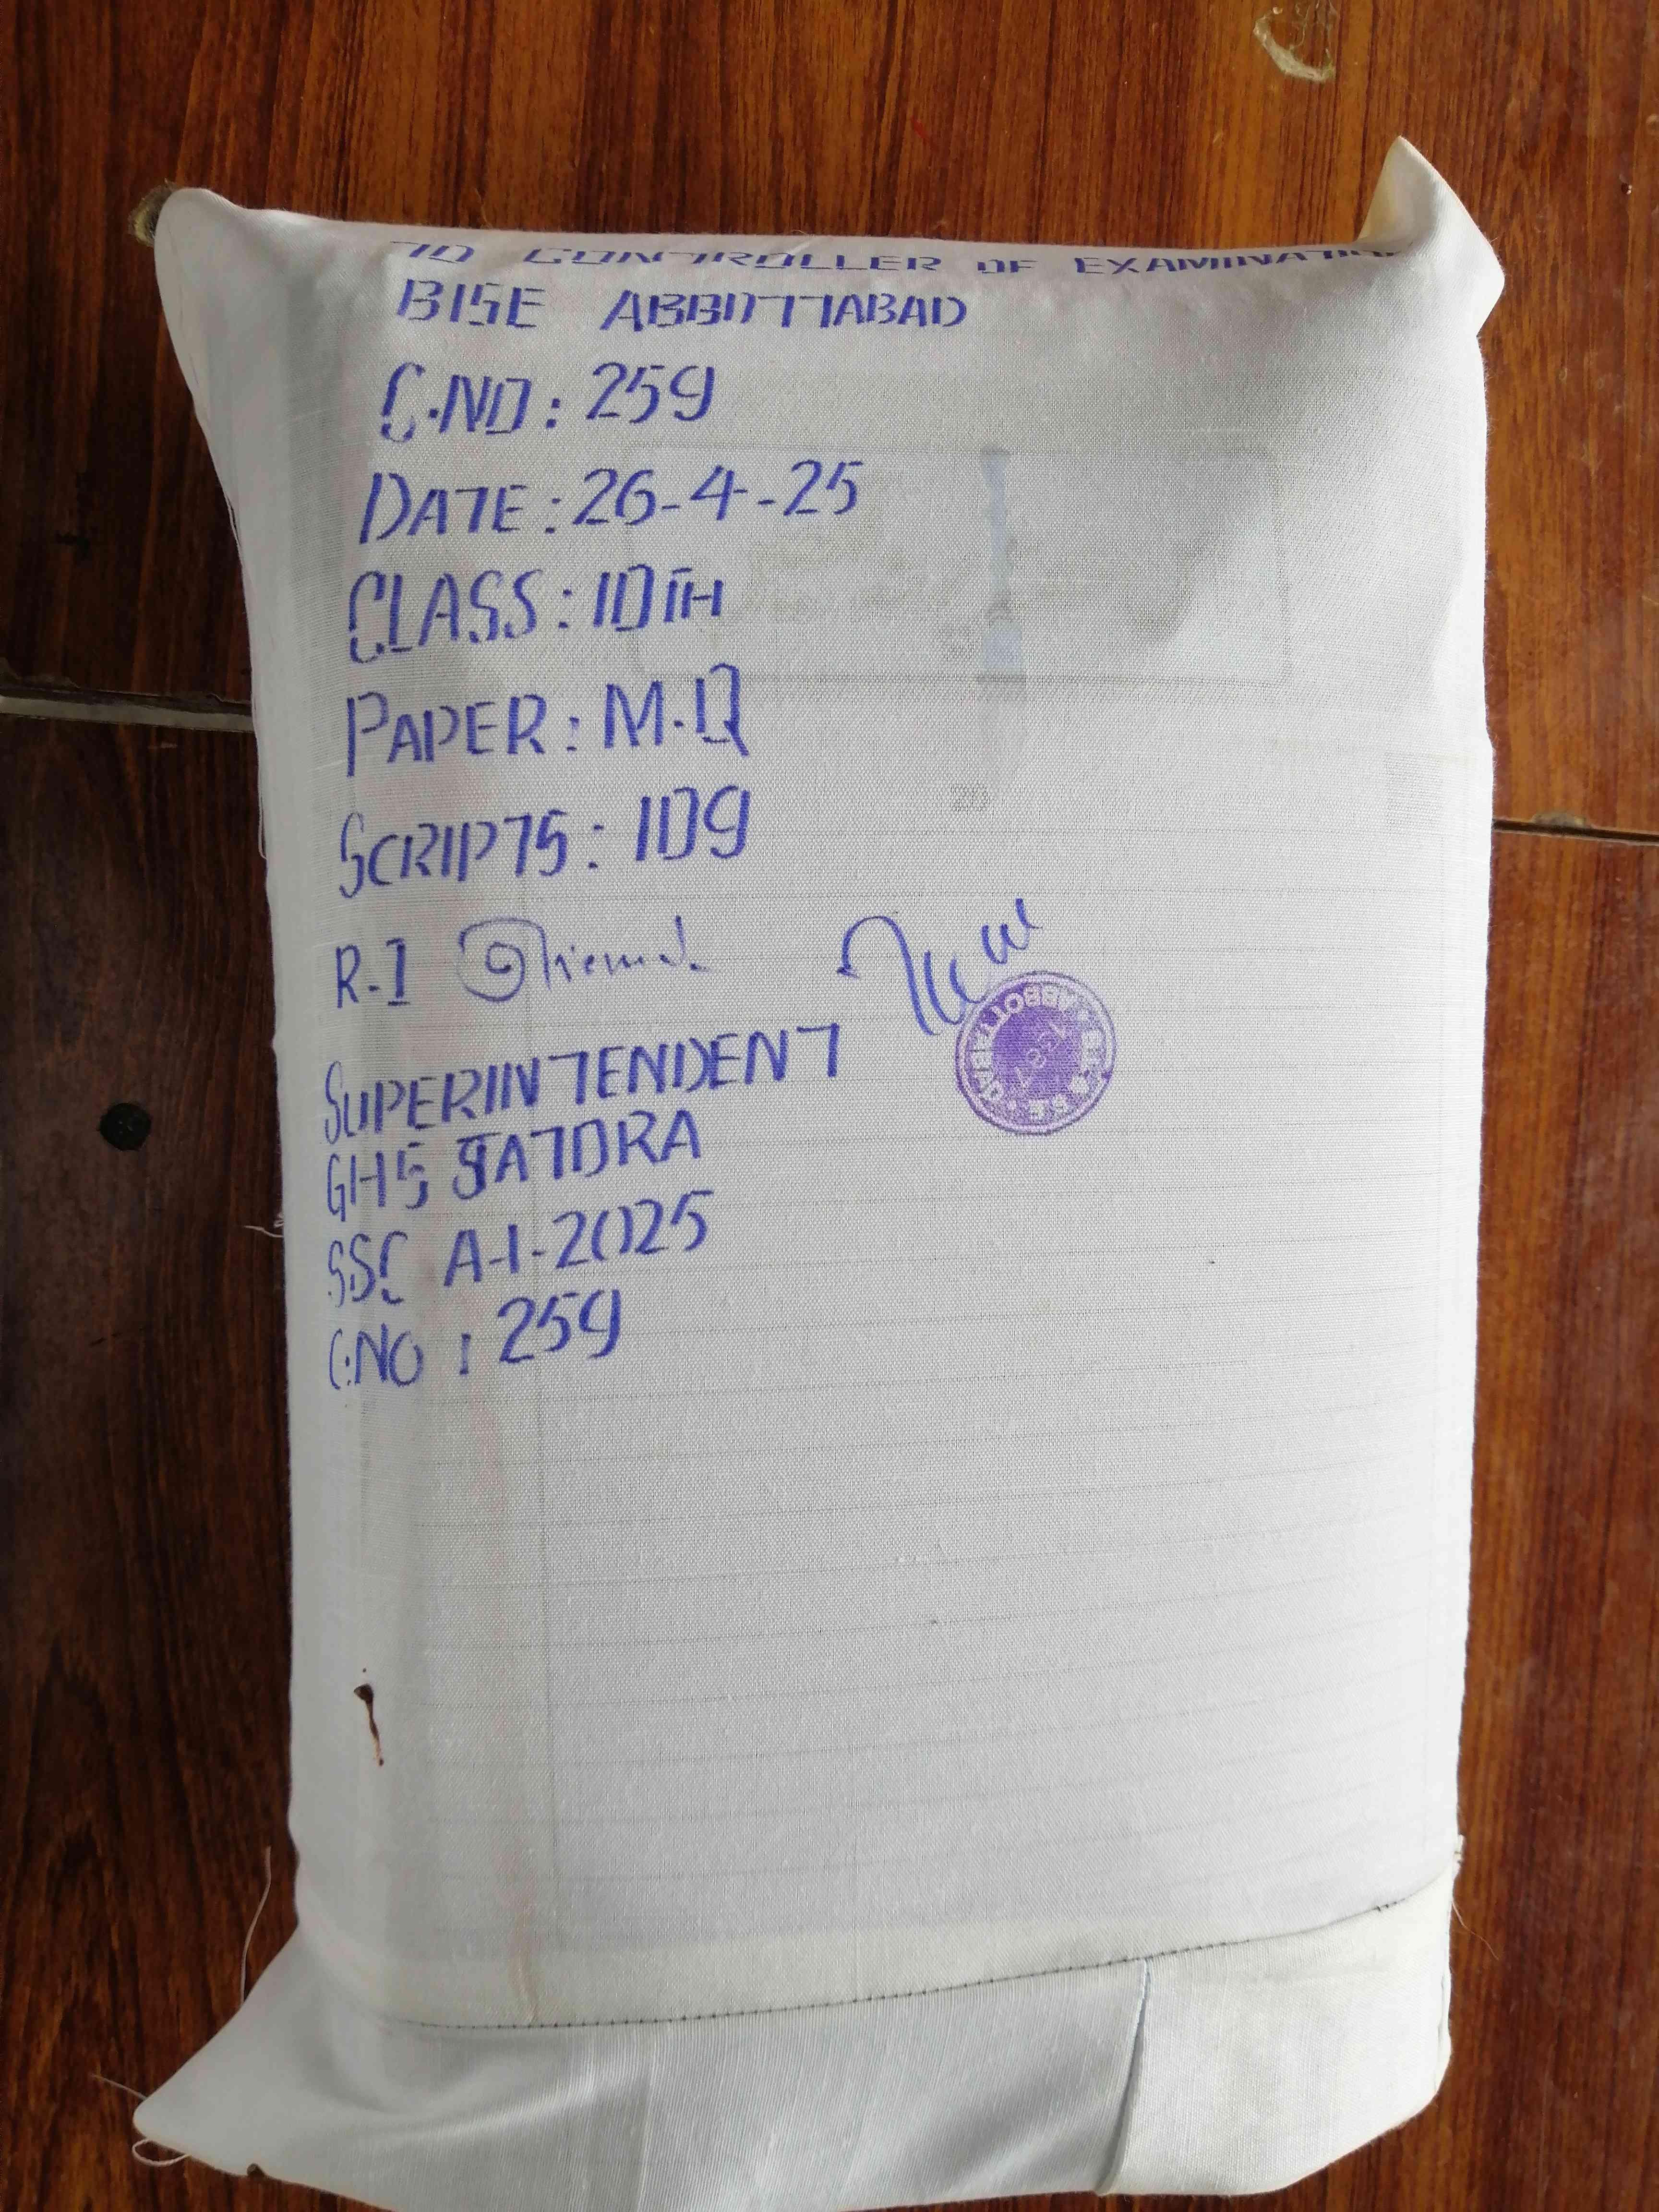 TO CONTROLLER OF EXAMINATION
BISE ABBOTTABAD
C.NO: 259
DATE: 26-4-25
CLASS: 10TH
PAPER: M.Q
SCRIPTS: 109
R.I
SUPERINTENDENT
GHS SATORA
SSC A-I-2025
C.NO: 259
ABBOTTABAD